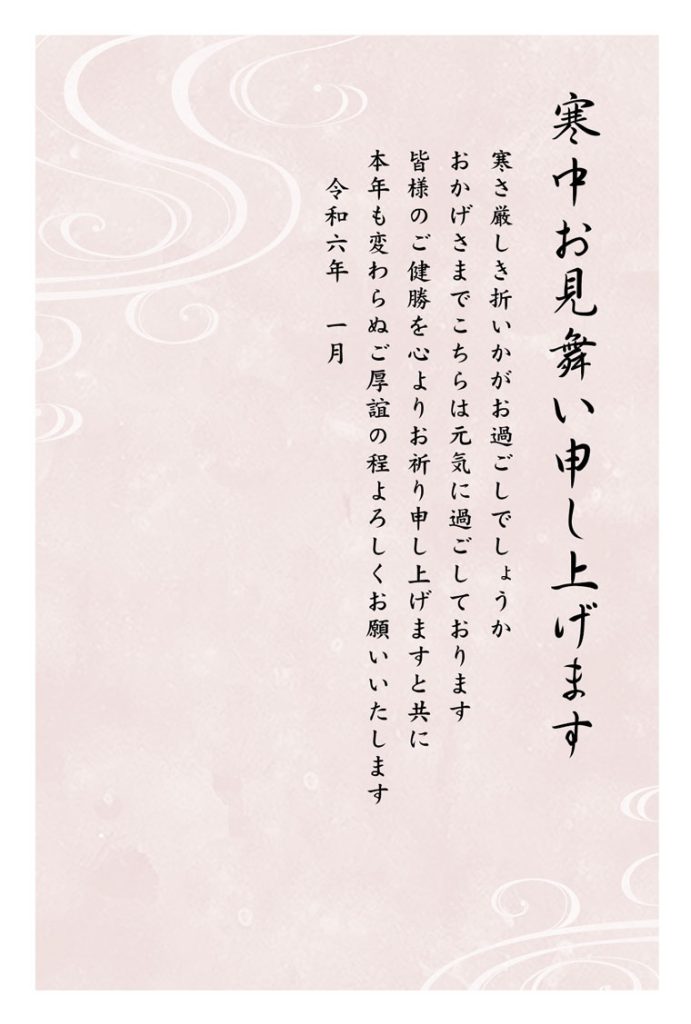 寒中お見舞い申し上げます
寒さ厳しき折いかがお過ごしでしょうか
おかげさまでこちらは元気に過ごしております
皆様のご健勝を心よりお祈り申し上げますと共に
本年も変わらぬご厚誼の程よろしくお願いいたします
令和六年 一月